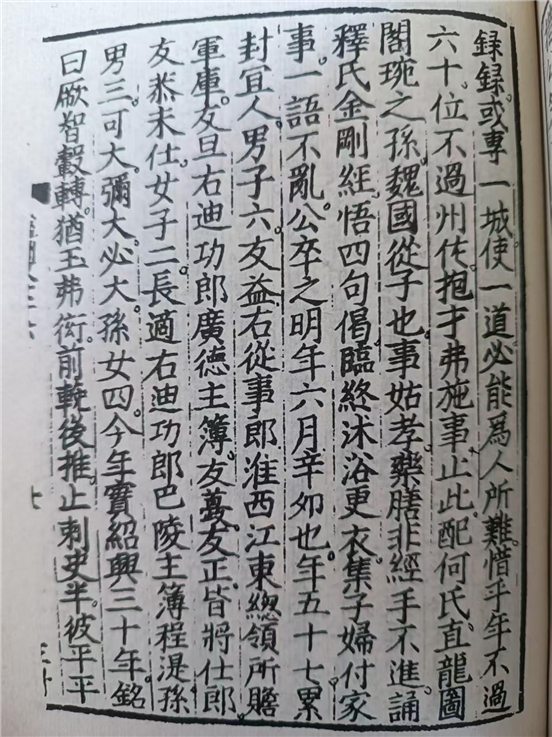 録録。或專一城。使一道。必能爲人所難。惜乎年不過
六十。位不過州佐。抱才弗施。事止此。配何氏。直龍圖
閣琬之孫。魏國從子也。事姑孝。藥膳非經手不進。誦
釋氏金剛經。悟四句偈。臨終沐浴更衣。集子婦付家
事。一語不亂。公卒之明年六月辛夘也。年五十七。累
封宜人。男子六。友益。右從事郎淮西江東緫領所贍
軍庫。友旦。右迪功郎廣德主簿。友。友正。皆將仕郎。
友㳟未仕。女子二。長適右迪功郎巴陵主簿程湜。孫
男三。可大。彌大。必大。孫女四。今年實紹興三十年。銘
曰。厥智轂轉。猶玉弗衒。前輓後推。止刺史半。彼平平